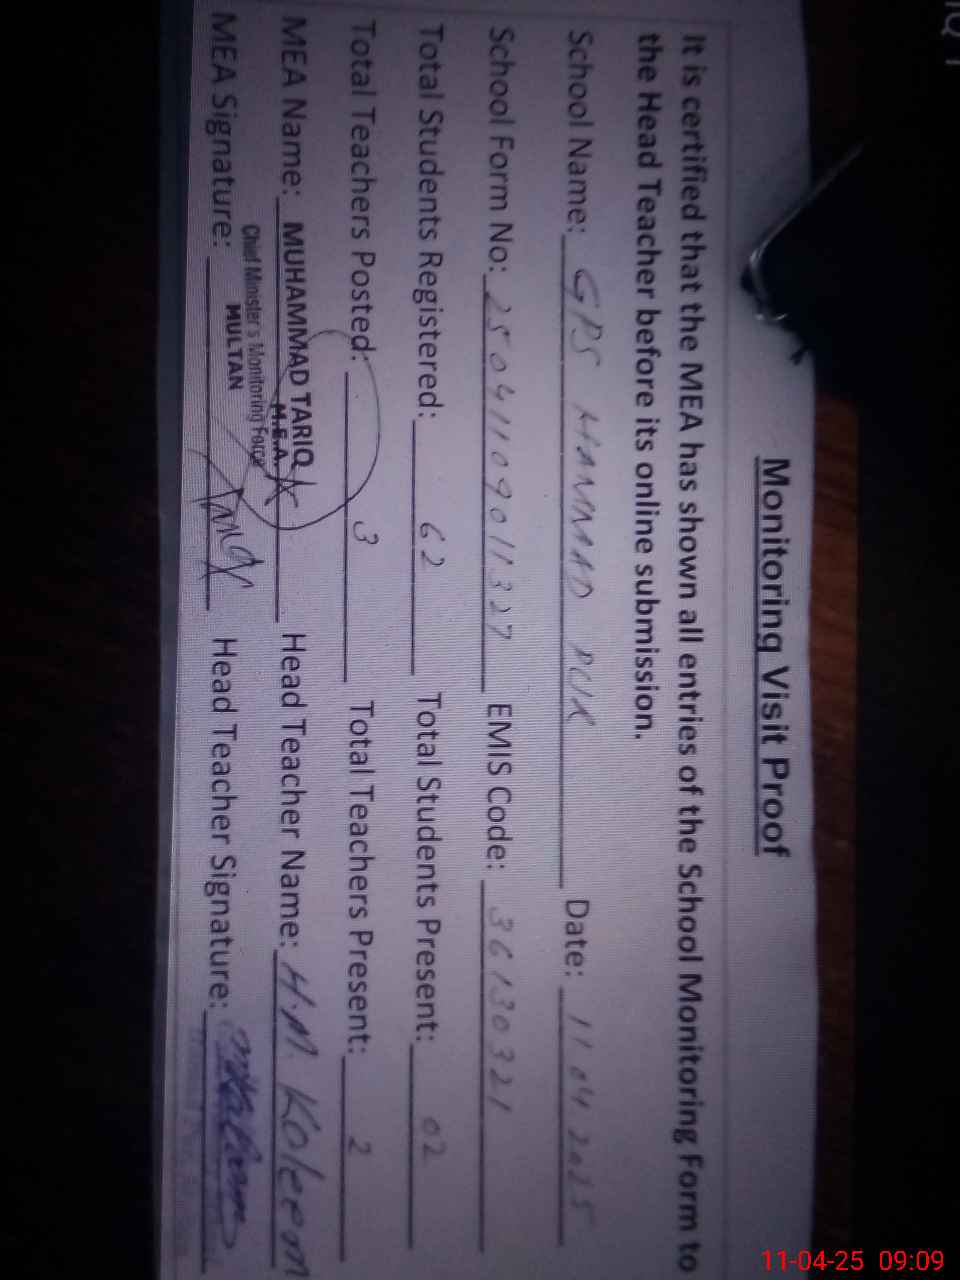 Monitoring Visit Proof
It is certified that the MEA has shown all entries of the School Monitoring Form to
the Head Teacher before its online submission.
School Name: GPS HAMMAD PUR Date: 11.04.2025
School Form No: 25041109011327 EMIS Code: 36130321
Total Students Registered: 62 Total Students Present: 02
Total Teachers Posted: 3 Total Teachers Present: 2
MEA Name: MUHAMMAD TARIQ Head Teacher Name: H.M. Koleem
M.E.A.
Chief Minister's Monitoring Force
MULTAN
MEA Signature: Tariq Head Teacher Signature:
11-04-25 09:09